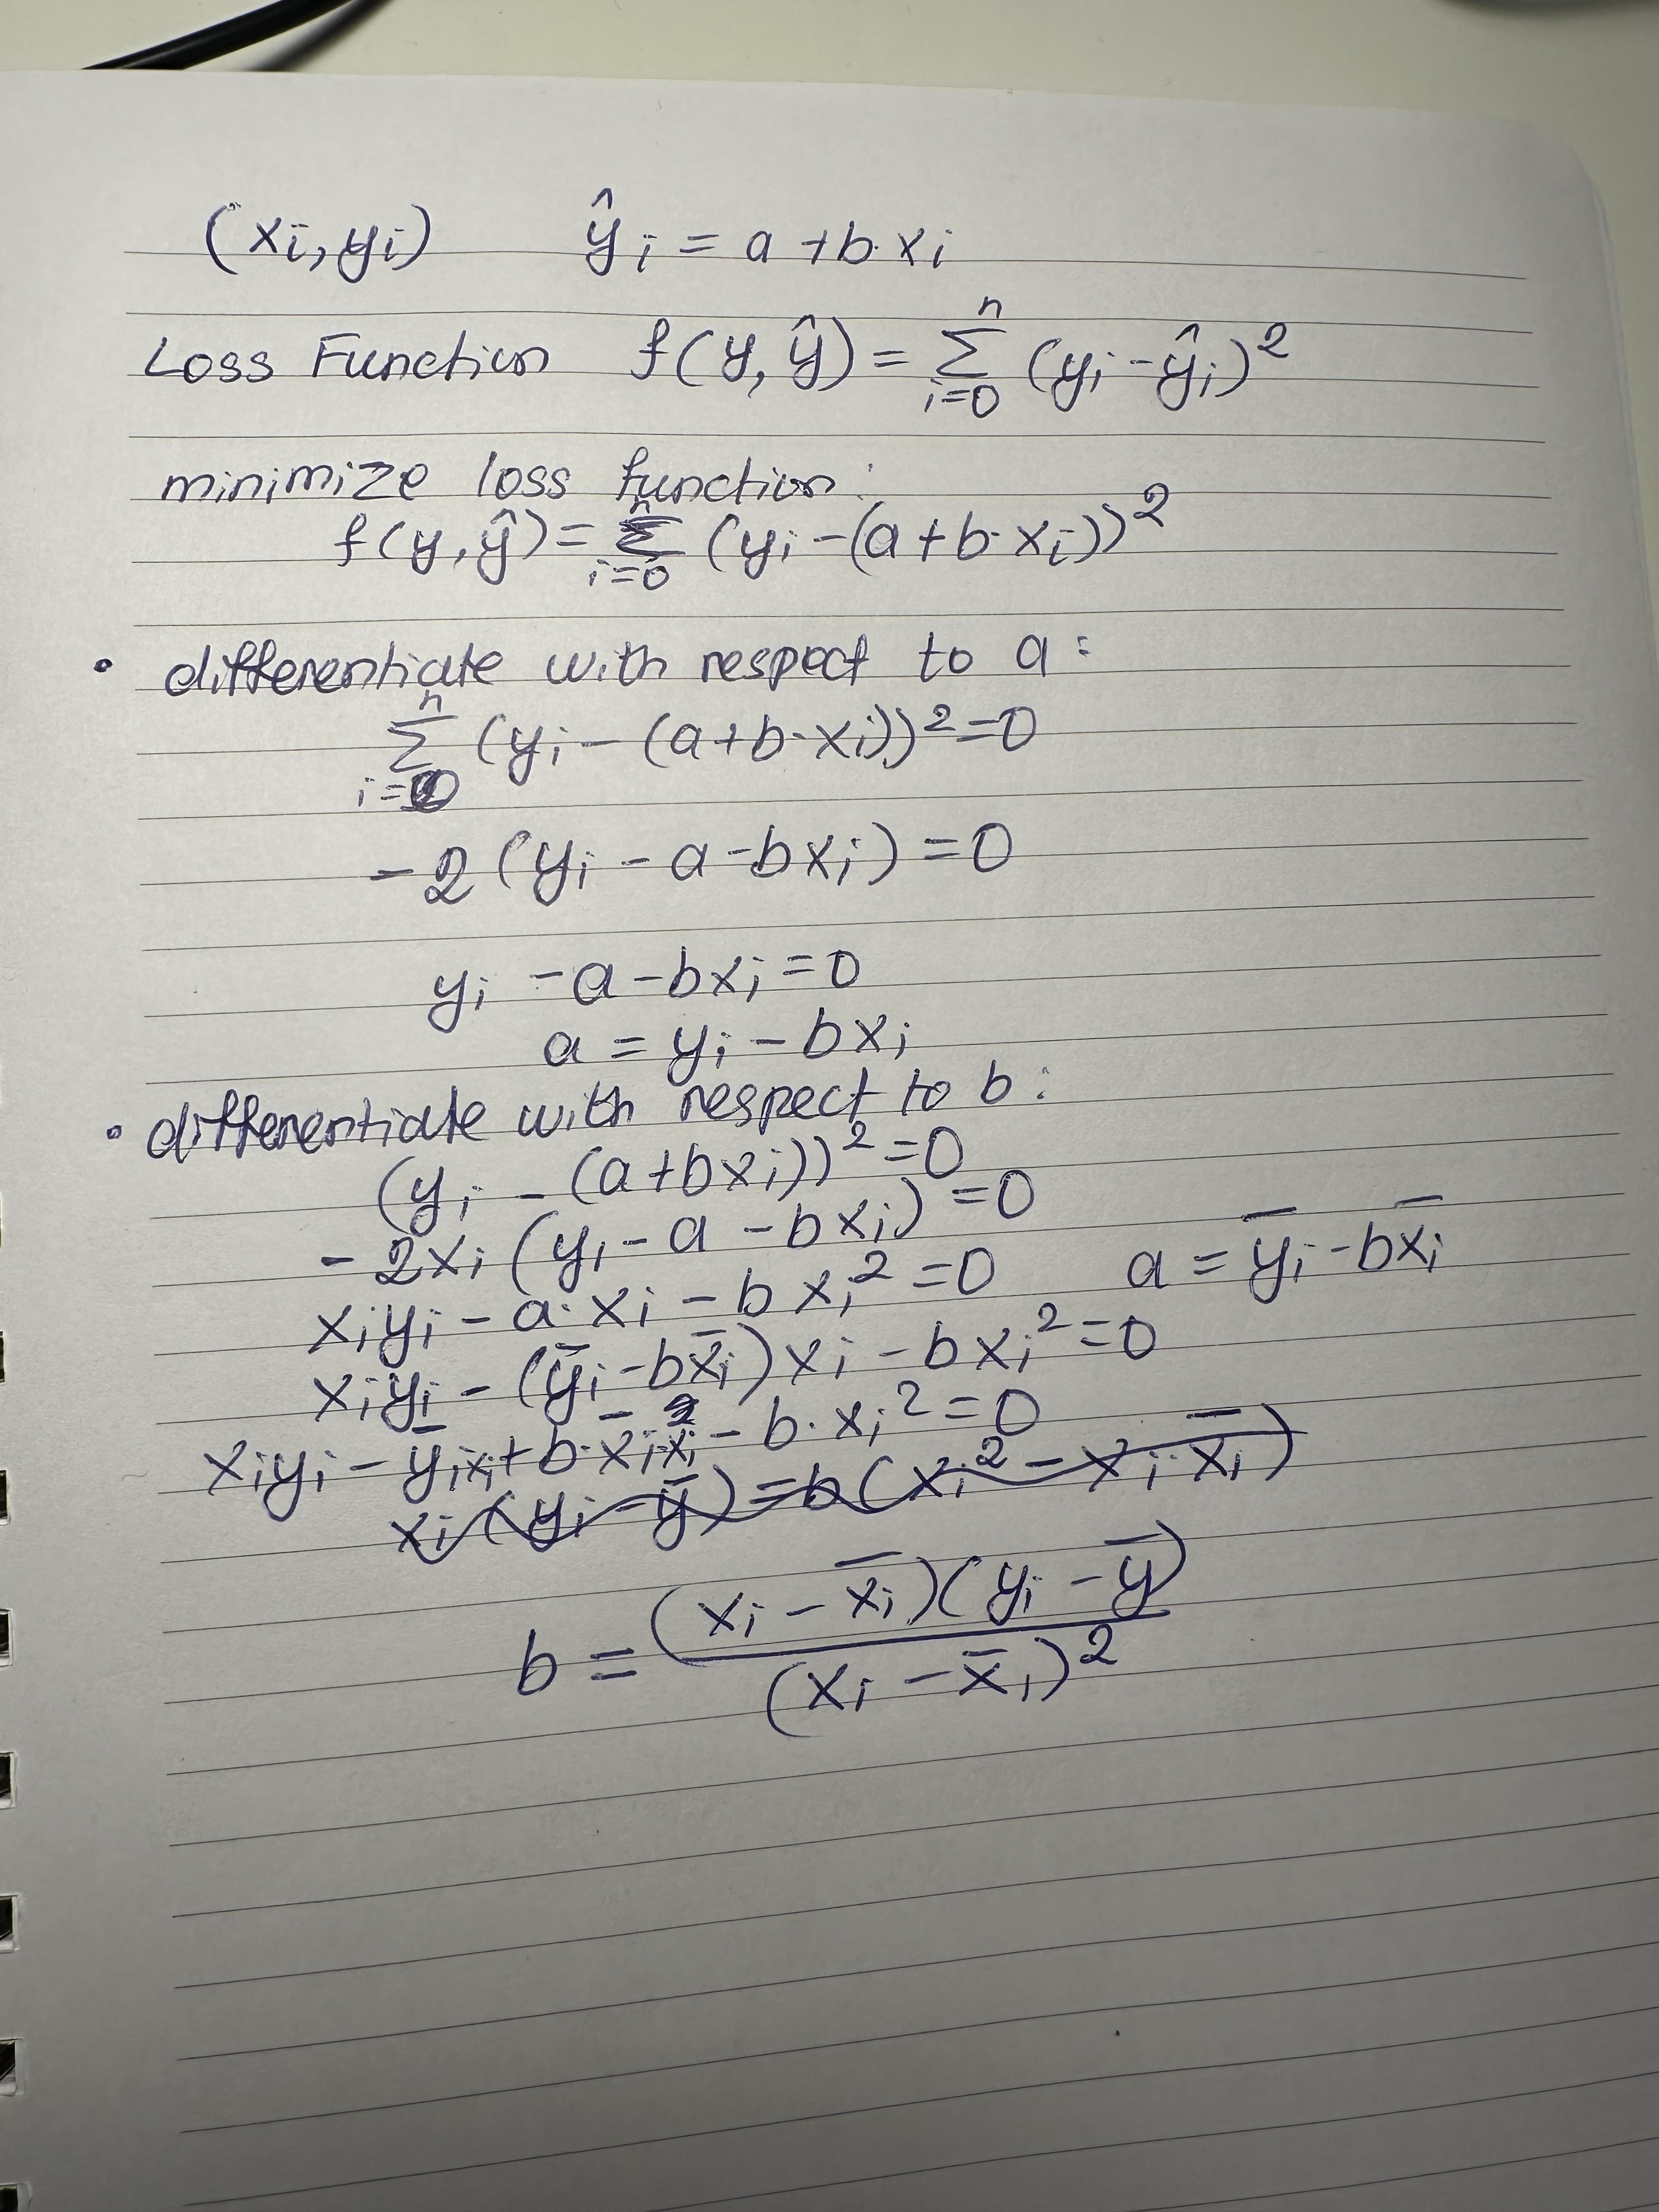 (xi, yi) ŷi = a + b·xi
Loss Function f(y, ŷ) = Σ_{i=0}^{n} (yi - ŷi)²
minimize loss function:
f(y, ŷ) = Σ_{i=0}^{n} (yi - (a + b·xi))²
• differentiate with respect to a:
Σ_{i=0}^{n} (yi - (a + b·xi))² = 0
-2 (yi - a - bxi) = 0
yi - a - bxi = 0
a = yi - bxi
• differentiate with respect to b:
(yi - (a + bxi))² = 0
-2xi (yi - a - bxi) = 0
xiyi - a·xi - bxi² = 0 a = y̅i - bx̅i
xiyi - (y̅i - bx̅i)xi - bxi² = 0
xiyi - y̅ixi + b·x̅i·xi - b·xi² = 0
xi(yi - y̅) = b(xi² - xi·x̅i)
b = (xi - x̅i)(yi - y̅) / (xi - x̅i)²